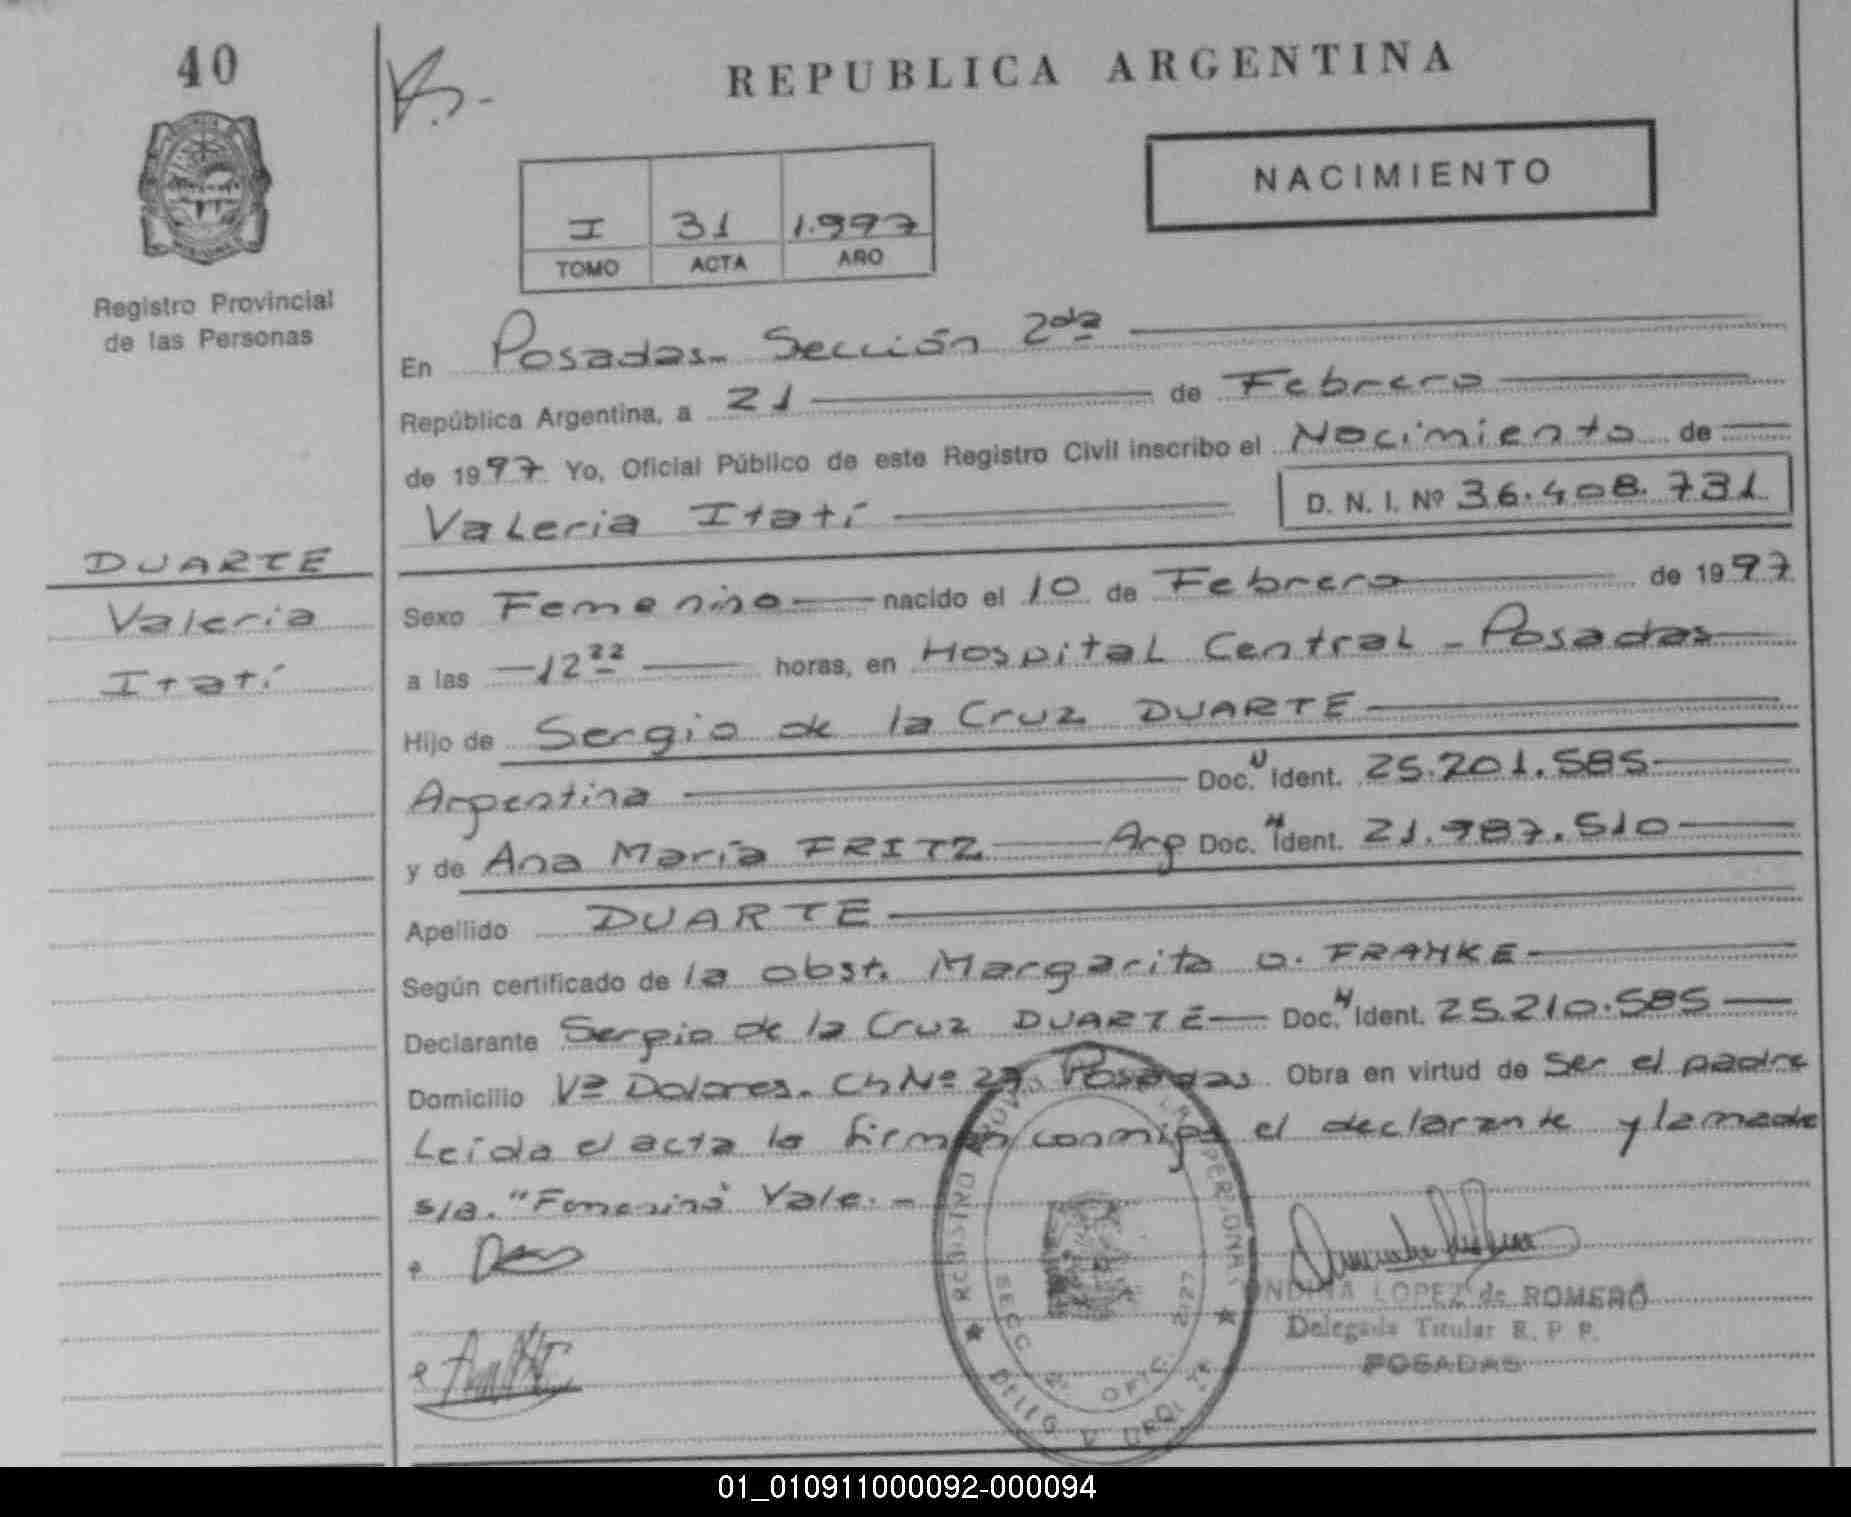 40
REPUBLICA ARGENTINA
NACIMIENTO
I 31 1.997
TOMO ACTA AÑO
Registro Provincial
de las Personas
En Posadas. Sección 2da
República Argentina, a 21 de Febrero
de 1997 Yo, Oficial Público de este Registro Civil inscribo el Nacimiento de
Valeria Itatí D. N. I. Nº 36.408.731
DUARTE
Valeria
Itatí
Sexo Femenino nacido el 10 de Febrero de 1997
a las 12 22 horas, en Hospital Central - Posadas
Hijo de Sergio de la Cruz DUARTE
Argentina Doc. N Ident. 25.201.585
y de Ana María FRITZ Arg Doc. N Ident. 21.987.510
Apellido DUARTE
Según certificado de la obst. Margarita o. FRANKE
Declarante Sergio de la Cruz DUARTE Doc. N Ident. 25.210.585
Domicilio Vª Dolores. Ch Nº 29. Posadas Obra en virtud de Ser el padre
Leída el acta la firman conmigo el declarante y la madre
s/a. "Femenino" Vale. -
REGISTRO PROV. DE LAS PERSONAS
SECC. 2ª OFIC. 2127
LOPEZ de ROMERO
Delegada Titular R. P. P.
POSADAS
01_010911000092-000094